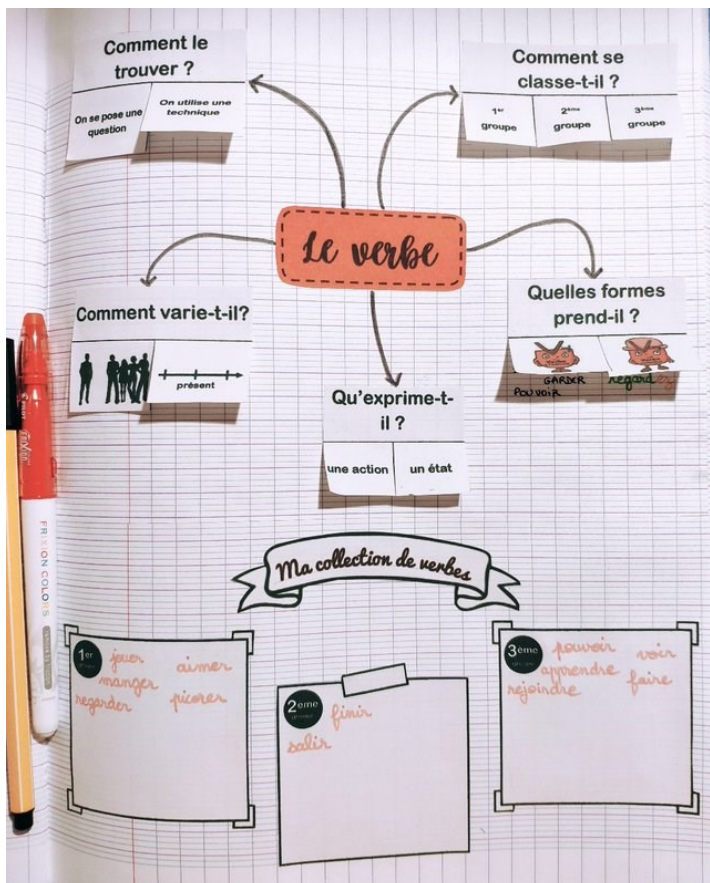 Comment le
trouver ?
On se pose une
question
On utilise une
technique
Comment se
classe-t-il ?
1er
groupe
2ème
groupe
3ème
groupe
Le verbe
Comment varie-t-il?
présent
Quelles formes
prend-il ?
GARDER
POUVOIR
regard
Qu'exprime-t-
il ?
une action
un état
Ma collection de verbes
1er
jouer aimer
manger
regarder picorer
2eme
finir
salir
3ème
pouvoir voir
apprendre
rejoindre faire
FRIXION COLORS